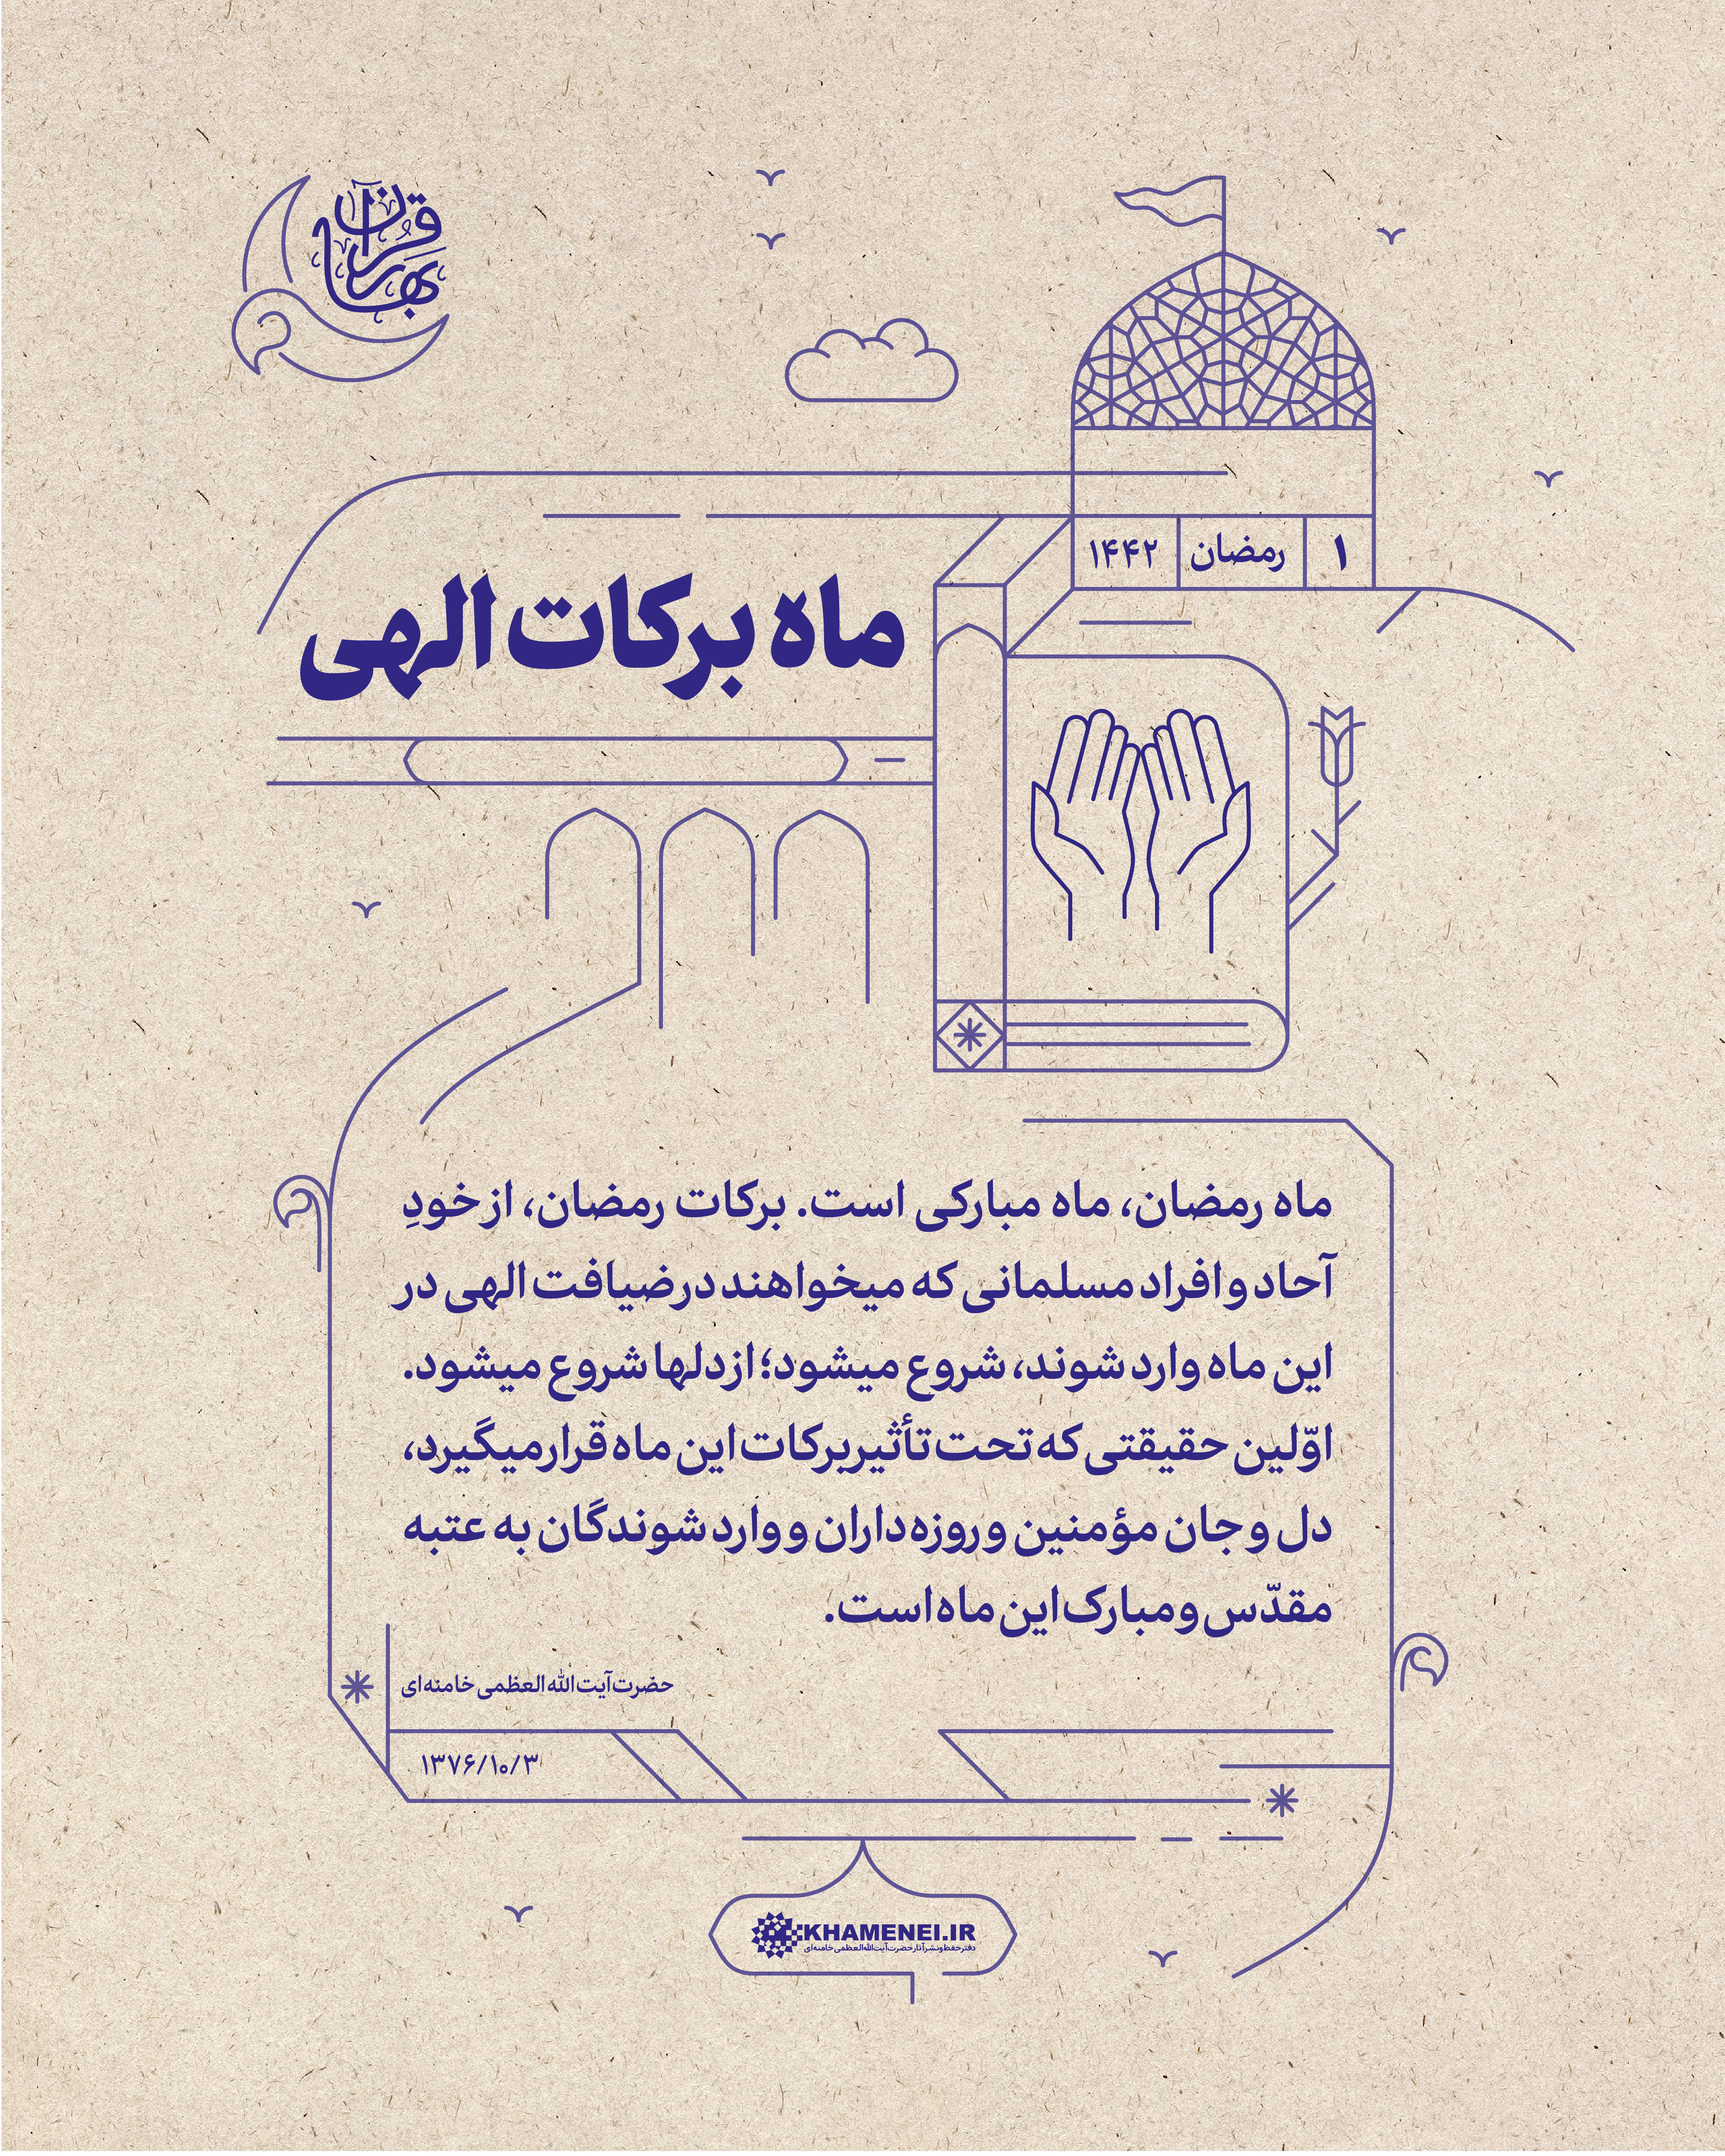 بهار قرآن
۱ رمضان ۱۴۴۲
ماه برکات الهی
ماه رمضان، ماه مبارکی است. برکات رمضان، از خودِ
آحاد و افراد مسلمانی که میخواهند در ضیافت الهی در
این ماه وارد شوند، شروع میشود؛ از دلها شروع میشود.
اوّلین حقیقتی که تحت تأثیر برکات این ماه قرار میگیرد،
دل و جان مؤمنین و روزه‌داران و وارد شوندگان به عتبه
مقدّس و مبارک این ماه است.
حضرت آیت الله العظمی خامنه‌ای
۱۳۷۶/۱۰/۳
KHAMENEI.IR
دفتر حفظ و نشر آثار حضرت آیت‌الله العظمی خامنه‌ای